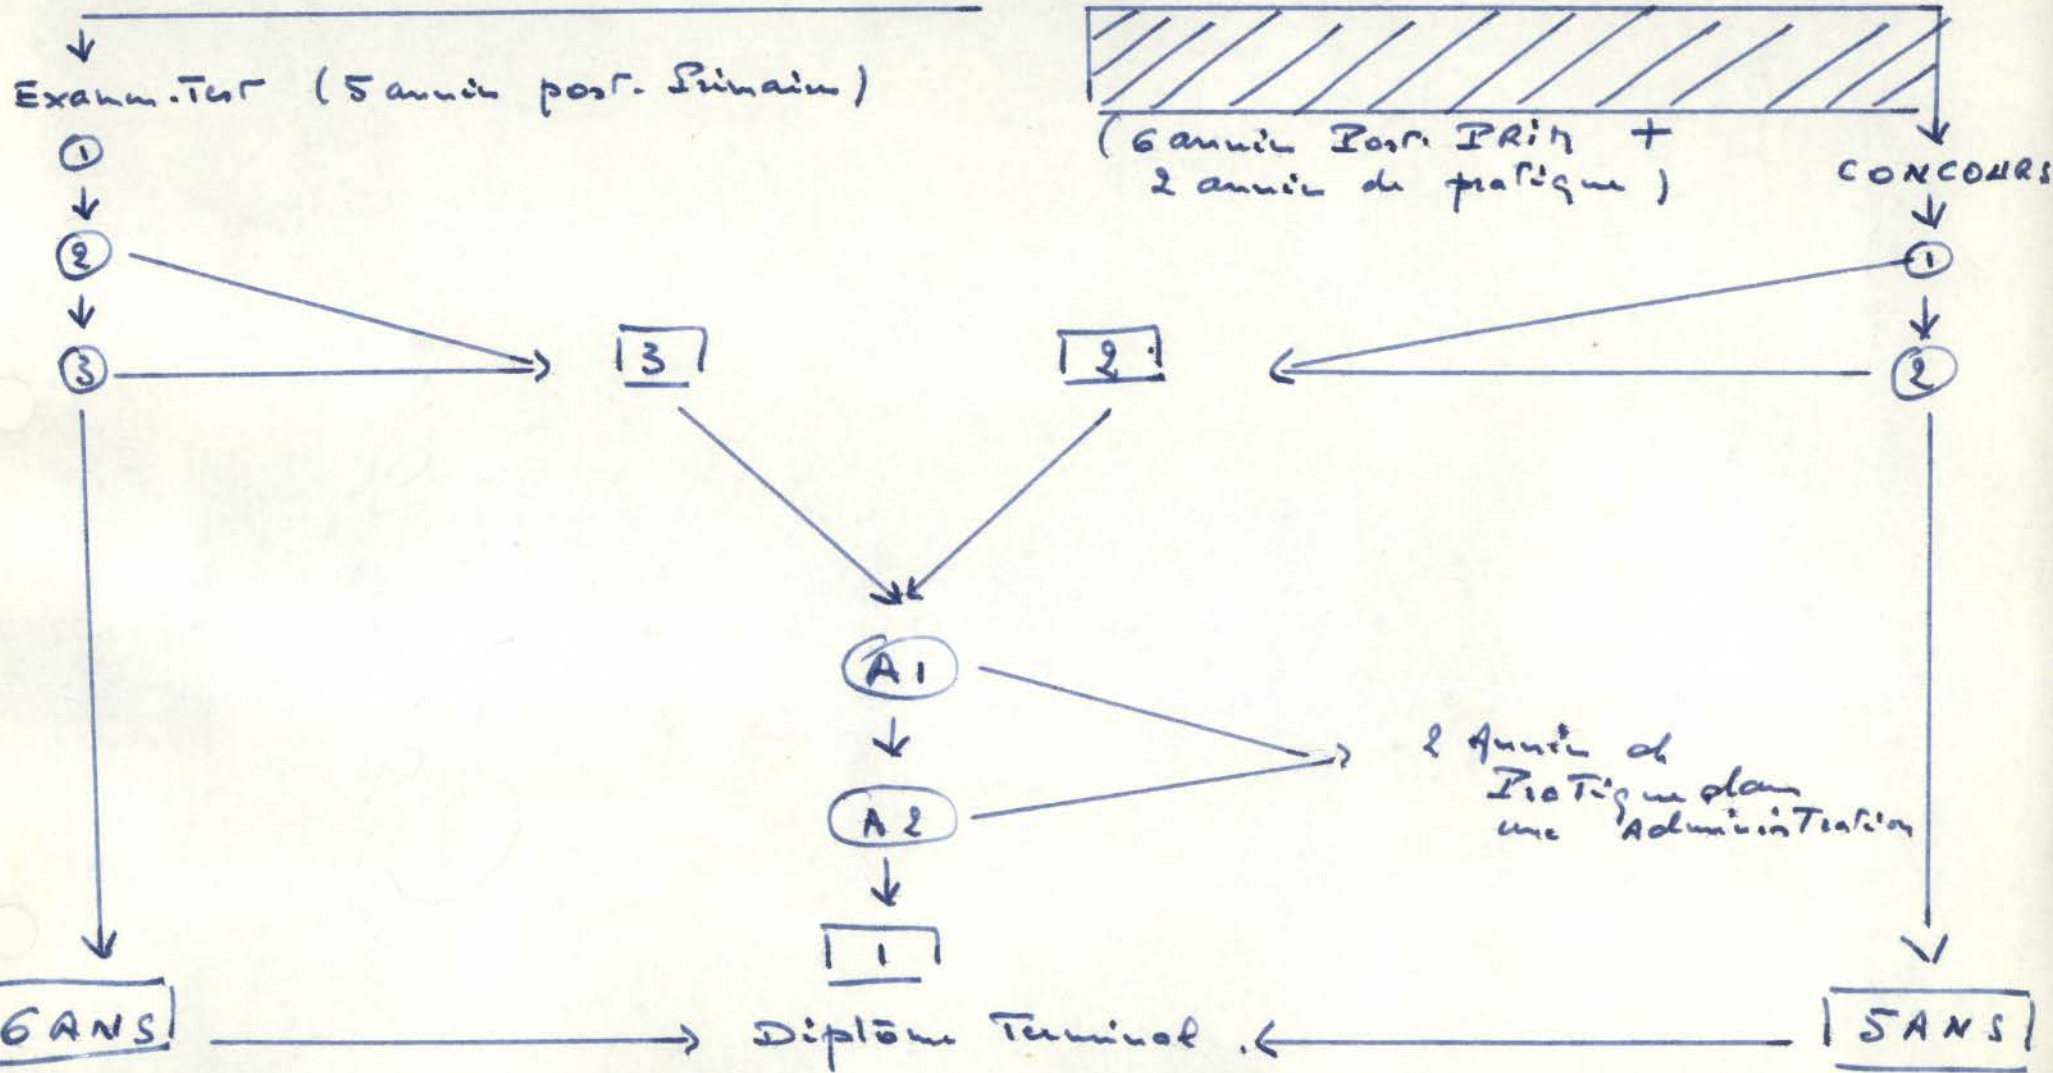 Examen-Test (5 années post-Primaires)
(6 années Post-PRIM +
2 années de pratique)
CONCOURS
1
2
3
3
2
1
2
A1
A2
2 Années de
Pratique dans
une Administration
1
6 ANS
Diplôme Terminal.
5 ANS